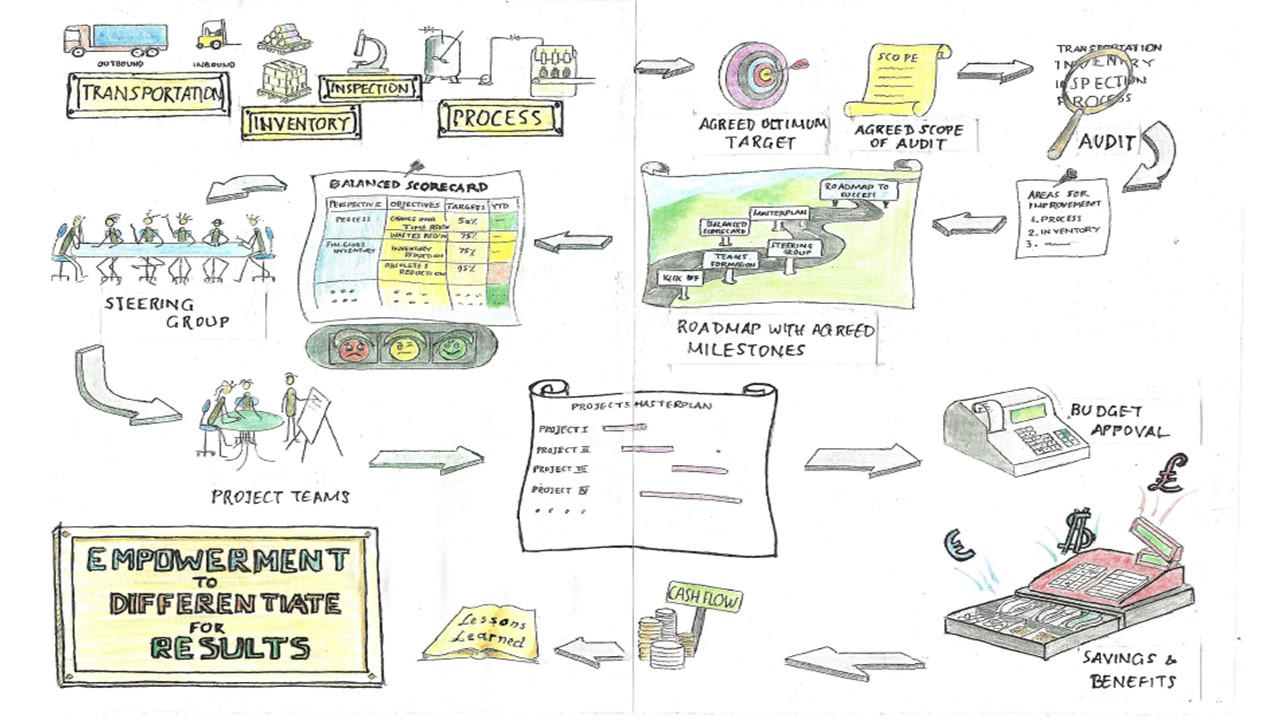 OUTBOUND
INBOUND
TRANSPORTATION
INVENTORY
INSPECTION
PROCESS
AGREED ULTIMUM
TARGET
SCOPE
AGREED SCOPE
OF AUDIT
TRANSPORTATION
INVENTORY
INSPECTION
PROCESS
AUDIT
AREAS FOR
IMPROVEMENT
1. PROCESS
2. INVENTORY
3.
ROADMAP TO
SUCCESS
MASTERPLAN
BALANCED
SCORECARD
STEERING
GROUP
TEAMS
FORMATION
KICK OFF
ROADMAP WITH AGREED
MILESTONES
BALANCED SCORECARD
PERSPECTIVE OBJECTIVES TARGETS YTD
PROCESS CHANGE OVER TIME RED'N 50%
WASTES RED'N 75%
FIN. GOODS INVENTORY INVENTORY REDUCTION 75%
OBSOLETES REDUCTION 95%
STEERING
GROUP
PROJECT TEAMS
PROJECTS MASTERPLAN
PROJECT I
PROJECT II
PROJECT III
PROJECT IV
BUDGET
APPOVAL
£
$
€
SAVINGS &
BENEFITS
CASH FLOW
Lessons
Learned
EMPOWERMENT
TO
DIFFERENTIATE
FOR
RESULTS